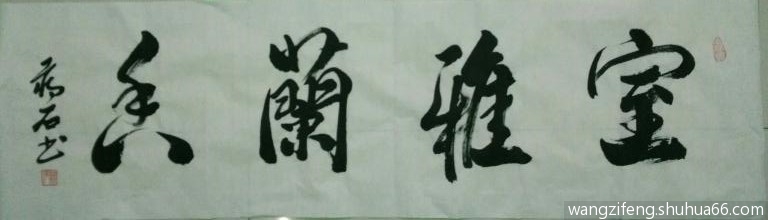 室雅蘭香
石书
wangzifeng.shuhua66.com